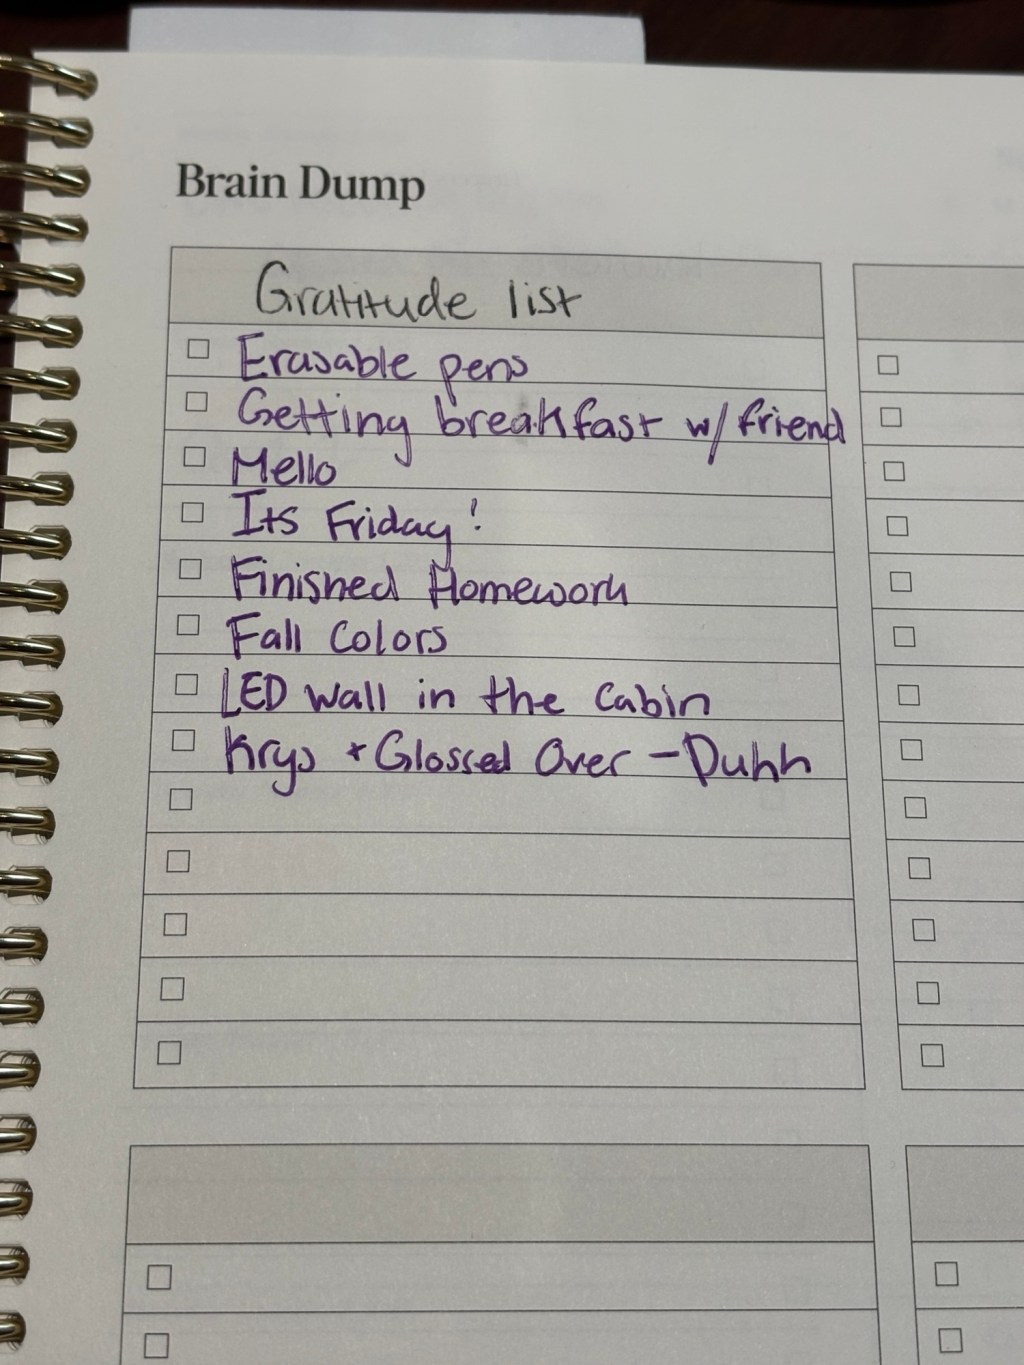 Brain Dump
Gratitude list
Erasable pens
Getting breakfast w/ friend
Mello
Its Friday!
Finished Homework
Fall Colors
LED Wall in the Cabin
Krys + Glossed Over - Duhh